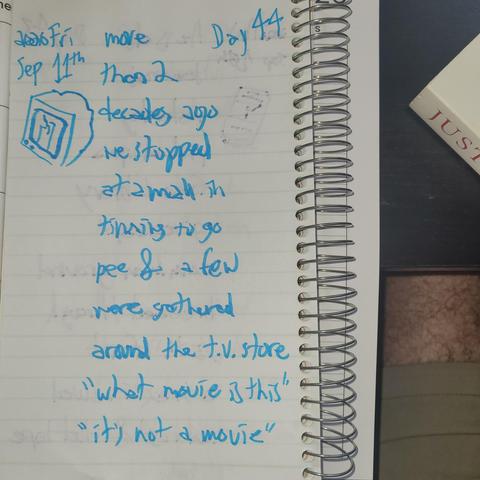 2026 Fri more Day 44
Sep 11th than 2
decades ago
we stopped
at a mall in
tipning to go
pee & a few
were gathered
around the t.v. store
"what movie is this"
"it's not a movie"
JUST